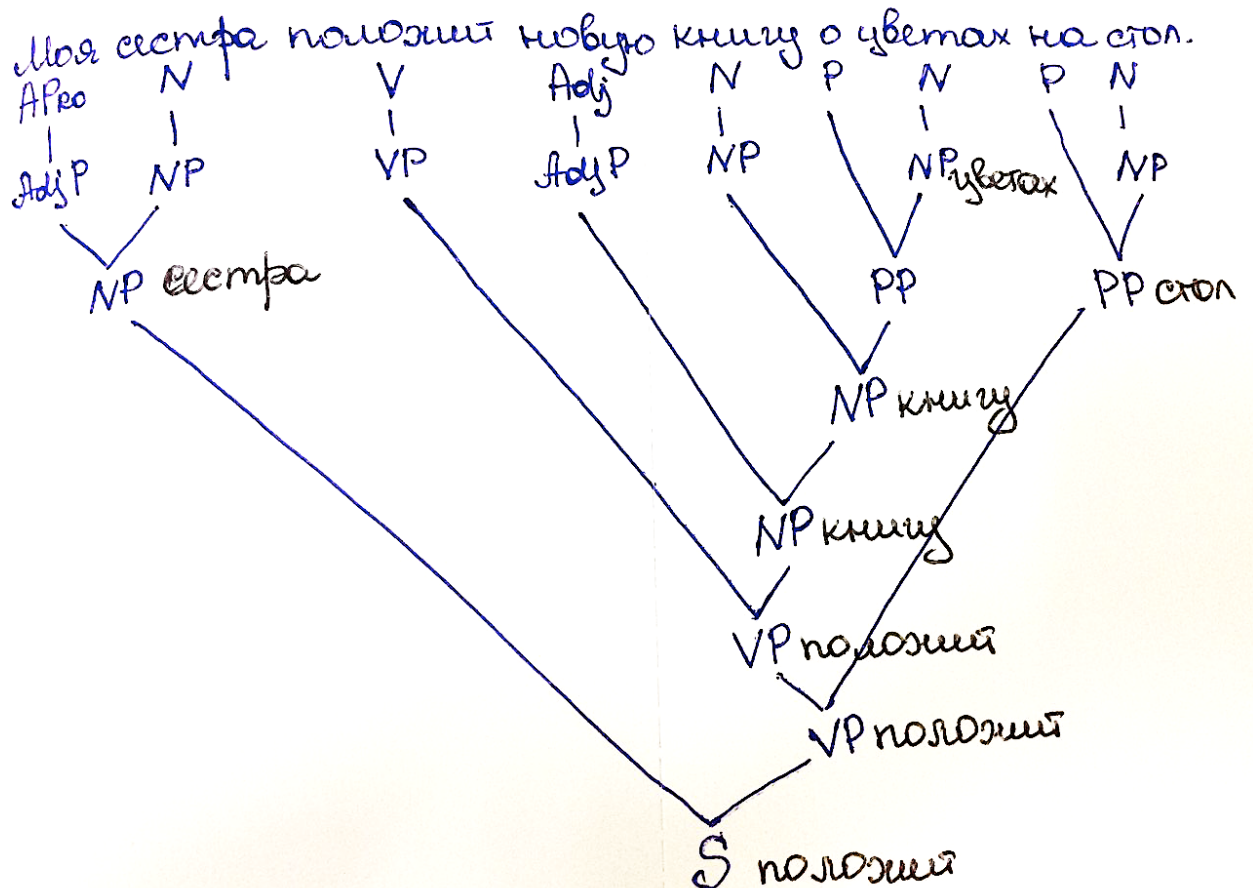 Моя сестра положит новую книгу о цветах на стол.
APro N V Adj N P N P N
AdjP NP VP AdjP NP NP цветах NP
NP сестра PP PP стол
NP книгу
NP книгу
VP положит
VP положит
S положит